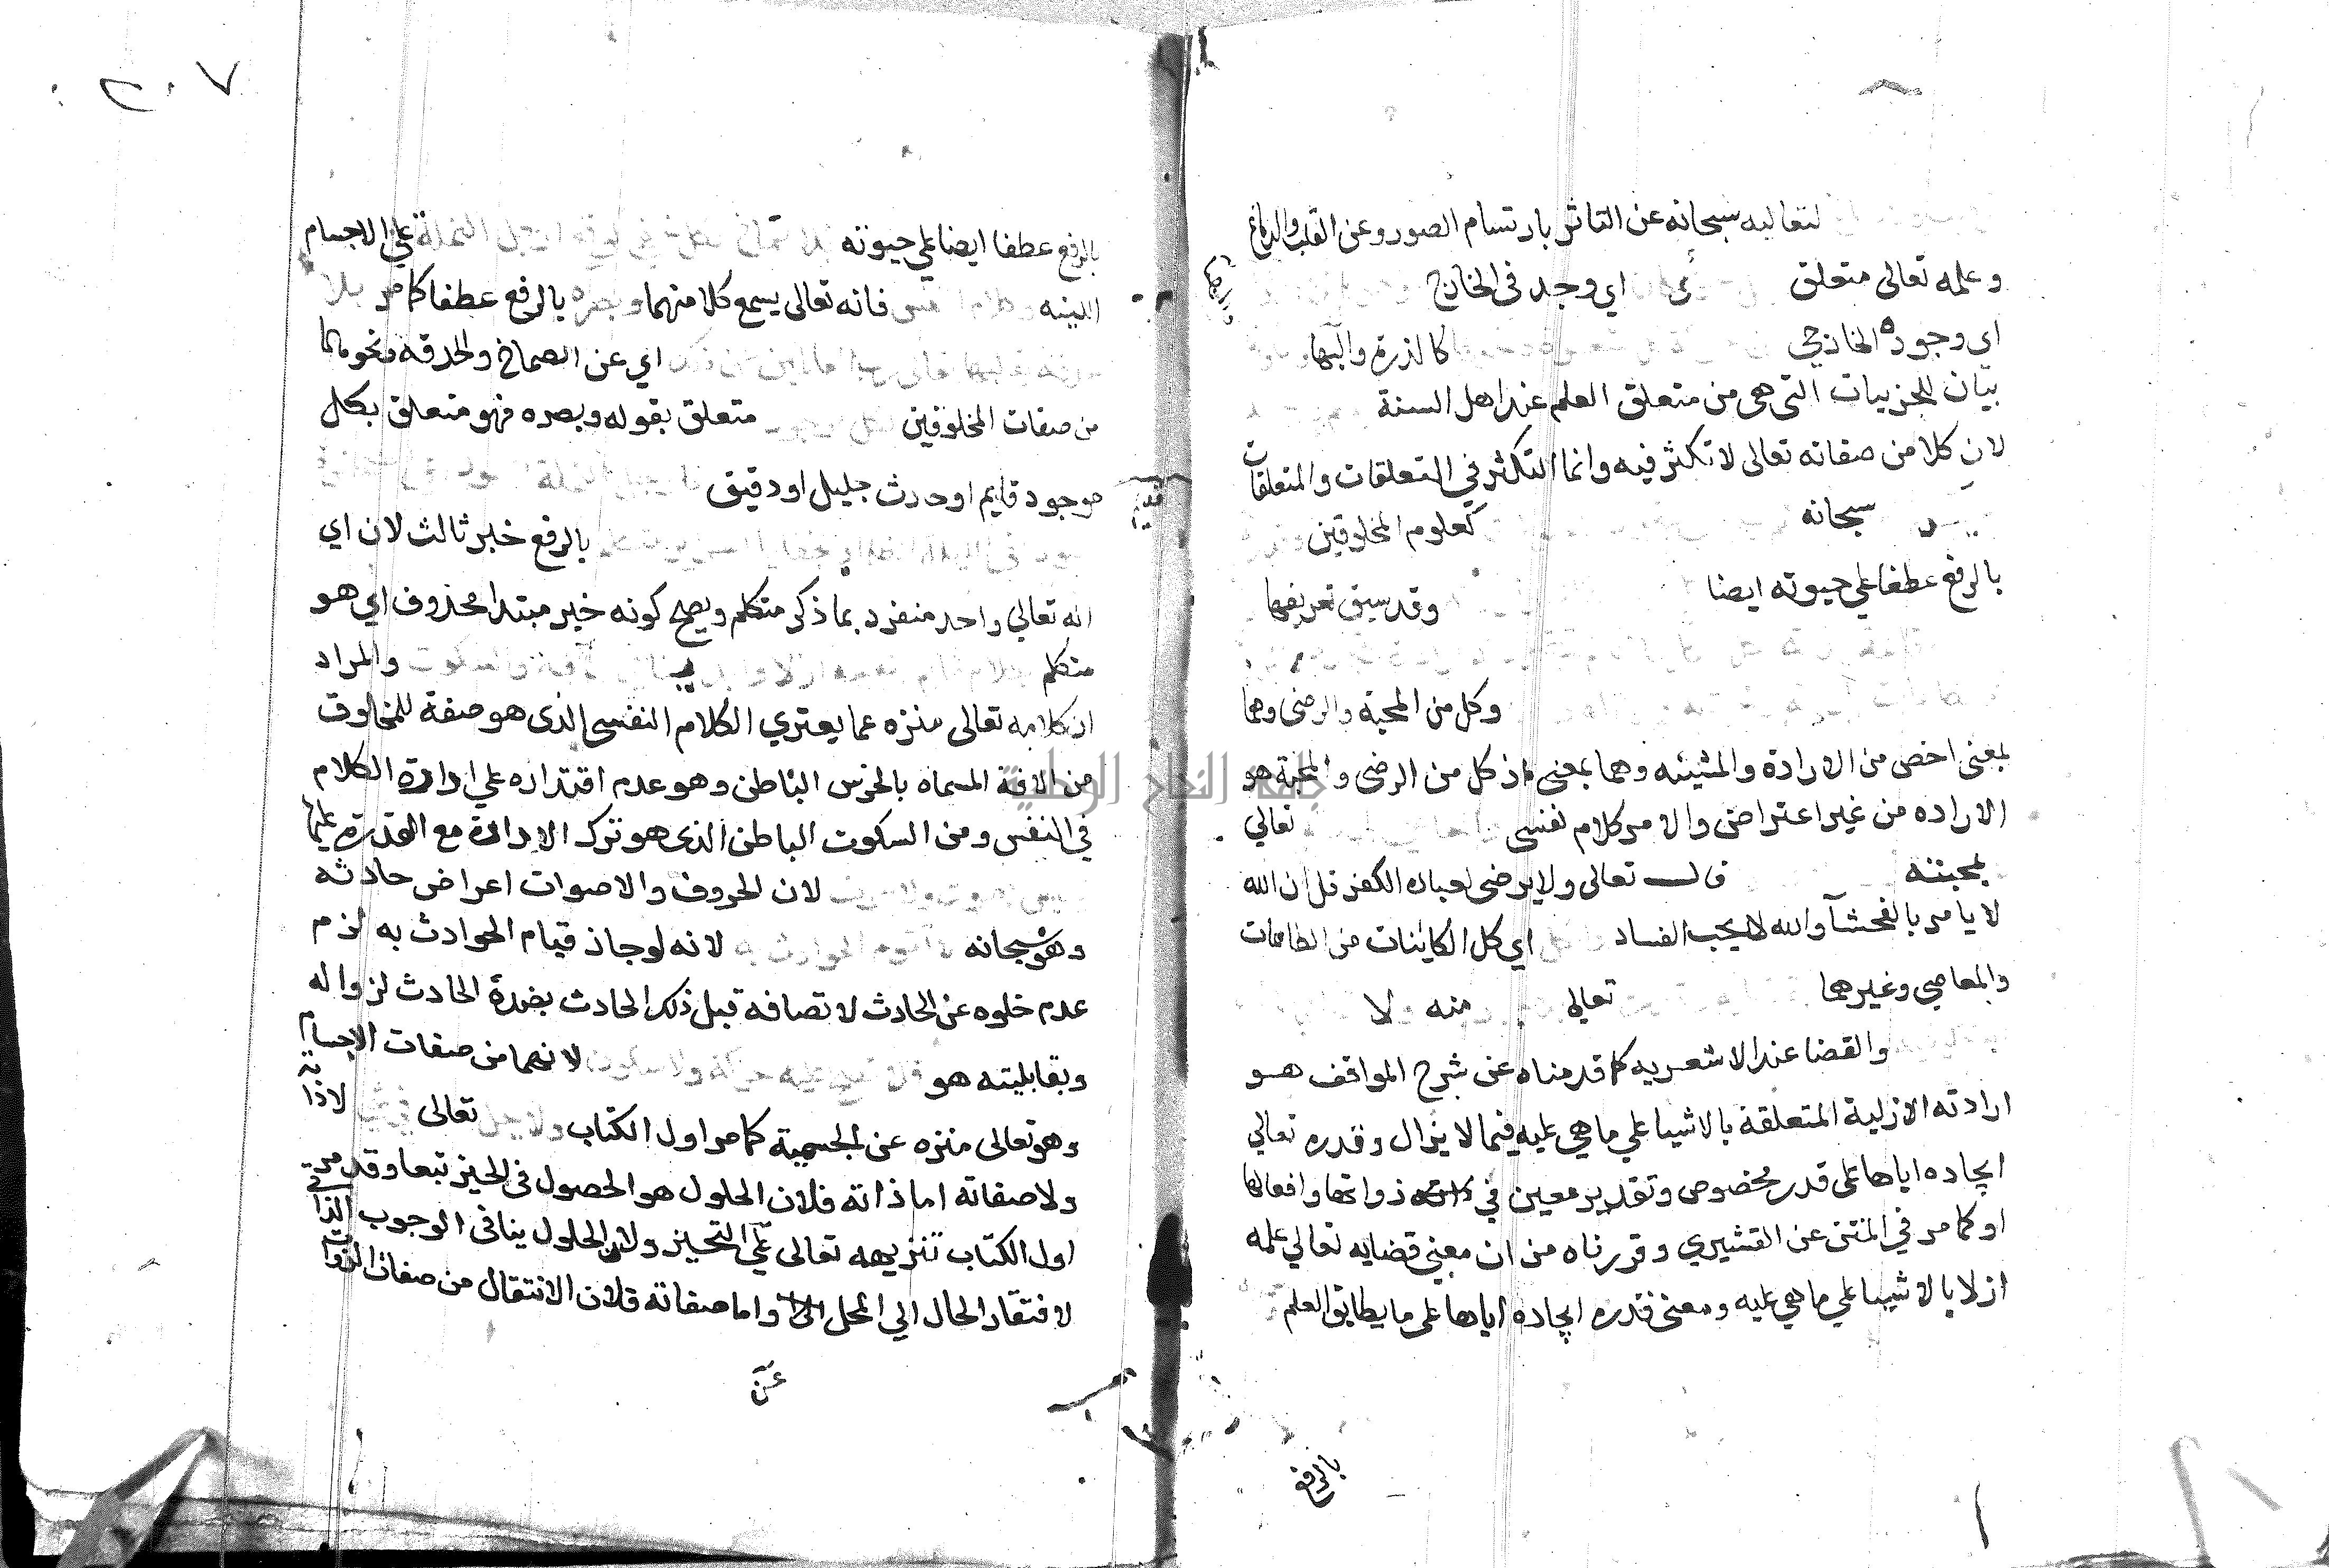 لتعاليه سبحانه عن التاثر بارتسام الصور وعن القلب والدماغ
وعلمه تعالى متعلق اي وجد فى الخارج
اي وجوده الخارجي كالذرة وآلبها
بيان للجزييات التى هى من متعلق العلم عند اهل السنة
لان كلا من صفاته تعالى لا تكثر فيه وانما التكثر في التعلقات والمتعلقات
سبحانه كعلوم المخلوقين
بالرفع عطفا علي حيوته ايضا وقد سبق تعريفهما
وكل من المحبة والرضى وهما
بمعنى اخص من الارادة والمشيئه وهما بمعنى اذ كل من الرضى والمحبة هو
الاراده من غير اعتراض والامر كلام نفسى تعالي
بمحبته قال تعالى ولا يرضى لعباده الكفر قل ان الله
لا يامر بالفحشآ والله لا يحب الفساد اي كل الكاينات من الطاعات
والمعاصي وغيرهما تعالي منه لا
والقضا عند الاشعريه كما قدمناه عن شرح المواقف هو
ارادته الازلية المتعلقة بالاشيا علي ما هي عليه فيما لا يزال وقدره تعالي
ايجاده اياها على قدر مخصوص وتقدير معين في ذواتها وافعالها
او كما مر في المتن عن القشيري وقررناه من ان معنى قضايه تعالي علمه
ازلا بالاشيا علي ما هي عليه ومعنى قدره ايجاده اياها على ما يطابق العلم
بالرفع
٢٠٧
بالرفع عطفا ايضا علي حيوته علي الاجسام
اللينه فانه تعالى يسمع كلا منهما وبصره بالرفع عطفا كما مر بلا
اي عن الصماخ والحدقه ونحوهما
من صفات المخلوقين متعلق بقوله وبصره فهو متعلق بكل
موجود قايم او حدث جليل او دقيق
قديم
بالرفع خبر ثالث لان اي
انه تعالي واحد منفرد بما ذكر متكلم ويصح كونه خبر مبتدا محذوف اي هو
متكلم والمراد
ان كلامه تعالى منزه عما يعتري الكلام النفسى الذى هو صفة للمخلوق
من الافة المسماه بالخرس الباطن وهو عدم اقتداره علي ارادة الكلام
في النفس ومن السكوت الباطن الذى هو ترك الارادة مع القدرة عليها
لان الحروف والاصوات اعراض حادثه
وهو سبحانه لانه لو جاز قيام الحوادث به لزم
عدم خلوه عن الحادث لاتصافه قبل ذلك الحادث بضده الحادث لزواله
وبقابليته هو لانهما من صفات الاجسام
وهو تعالى منزه عن الجسمية كما مر اول الكتاب تعالى لا ذاته
ولا صفاته اما ذاته فلان الحلول هو الحصول فى الحيز تبعا وقد مر في
اول الكتاب تنزيهه تعالى عن التحيز ولان الحلول ينافى الوجوب الذاتي
لافتقار الحال الي المحل واما صفاته فلان الانتقال من صفات الذوات
جامعة النجاح الوطنية